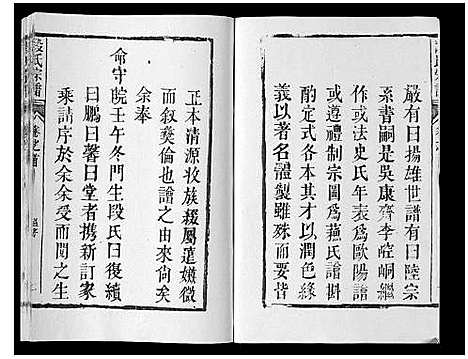 嚴有曰揚雄世譜有曰陸宗
系書嗣是吳康齊李崆峒繼
作或法史氏年表爲歐陽譜
或遵禮制宗圖爲蘓氏譜斟
酌定式各本其才以潤色緣
義以著名體製雖殊而要皆
正本清源收族援屬遠嫌微
而叙彜倫也譜之由來尙矣
余奉
命守皖壬午冬門生段氏曰復續
曰鵬曰馨曰堂者攜新訂家
乘請序於余余受而閱之生
段氏宗譜
卷之首